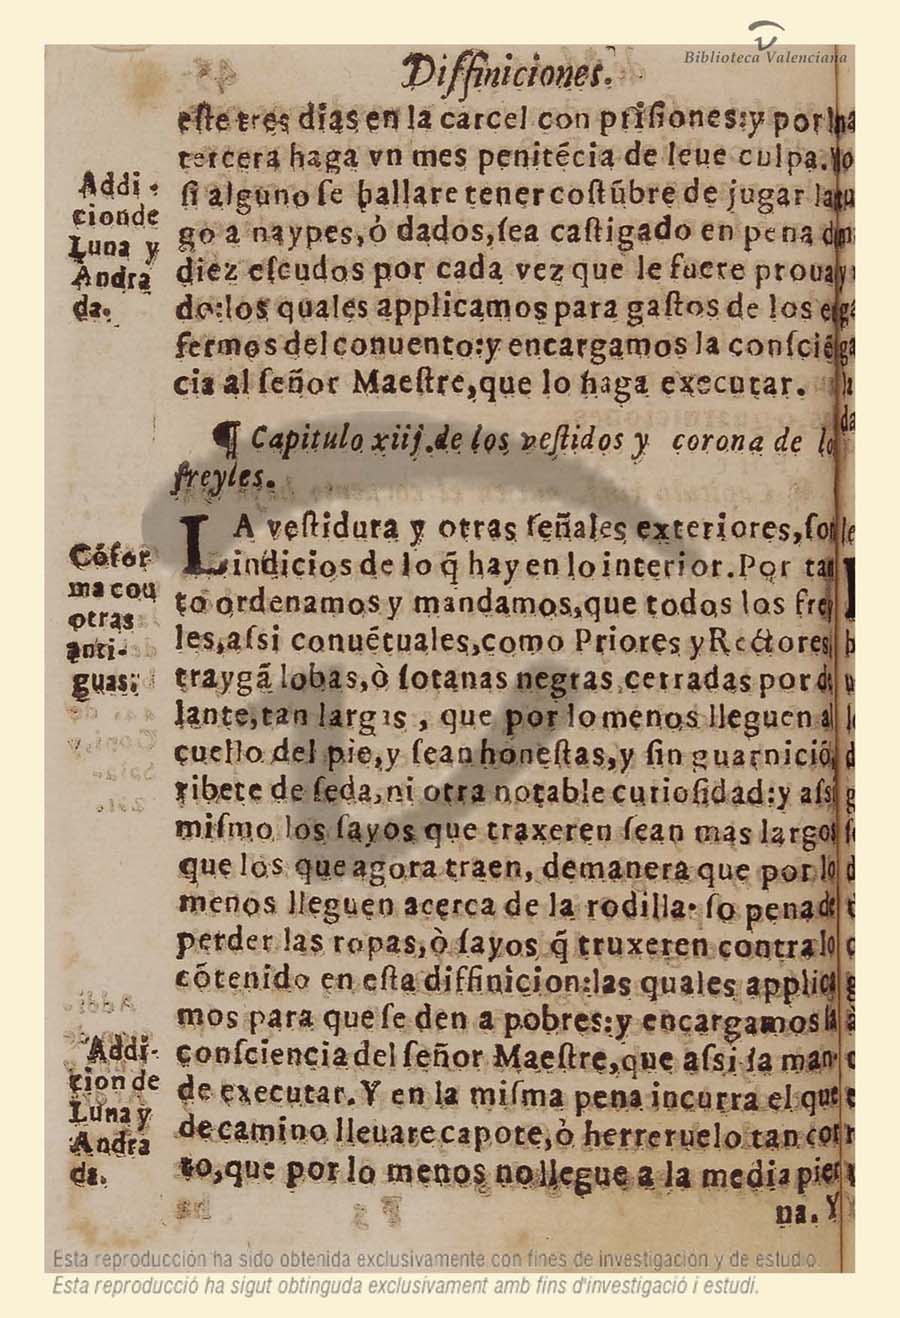 Biblioteca Valenciana
Diffiniciones.
eſte tres dias en la carcel con priſiones:y por la
tercera haga vn mes penitẽcia de leue culpa. Y
ſi alguno ſe hallare tener coſtũbre de jugar
go a naypes,ò dados,ſea caſtigado en pena
diez eſcudos por cada vez que le fuere proua
do:los quales applicamos para gaſtos de los
fermos del conuento:y encargamos la conſciẽ
cia al ſeñor Maeſtre,que lo haga executar.
Addi
cion de
Luna y
Andra
da.
¶ Capitulo xiij.de los veſtidos y corona de
freyles.
LA veſtidura y otras ſeñales exteriores,ſon
indicios de lo q̃ hay en lo interior.Por tan
to ordenamos y mandamos,que todos los frey
les,aſsi conuẽtuales,como Priores y Rectores,
traygã lobas,ò ſotanas negras cerradas por de
lante,tan largas , que por lo menos lleguen al
cuello del pie,y ſean honeſtas,y ſin guarniciõ,
ribete de ſeda,ni otra notable curioſidad:y aſsi
miſmo los ſayos que traxeren ſean mas largos
que los que agora traen, demanera que por lo
menos lleguen acerca de la rodilla· ſo pena de
perder las ropas,ò ſayos q̃ truxeren contra lo
cõtenido en eſta diffinicion:las quales applica
mos para que ſe den a pobres:y encargamos la
conſciencia del ſeñor Maeſtre,que aſsi la man
de executar.Y en la miſma pena incurra el que
de camino lleuare capote,ò herreruelo tan cor
to,que por lo menos no llegue a la media pier
na. Y
Cõfor
ma con
otras
anti-
guas:
Addi-
cion de
Luna y
Andra
da.
Esta reproducción ha sido obtenida exclusivamente con fines de investigación y de estudio.
Esta reproducció ha sigut obtinguda exclusivament amb fins d'investigació i estudi.